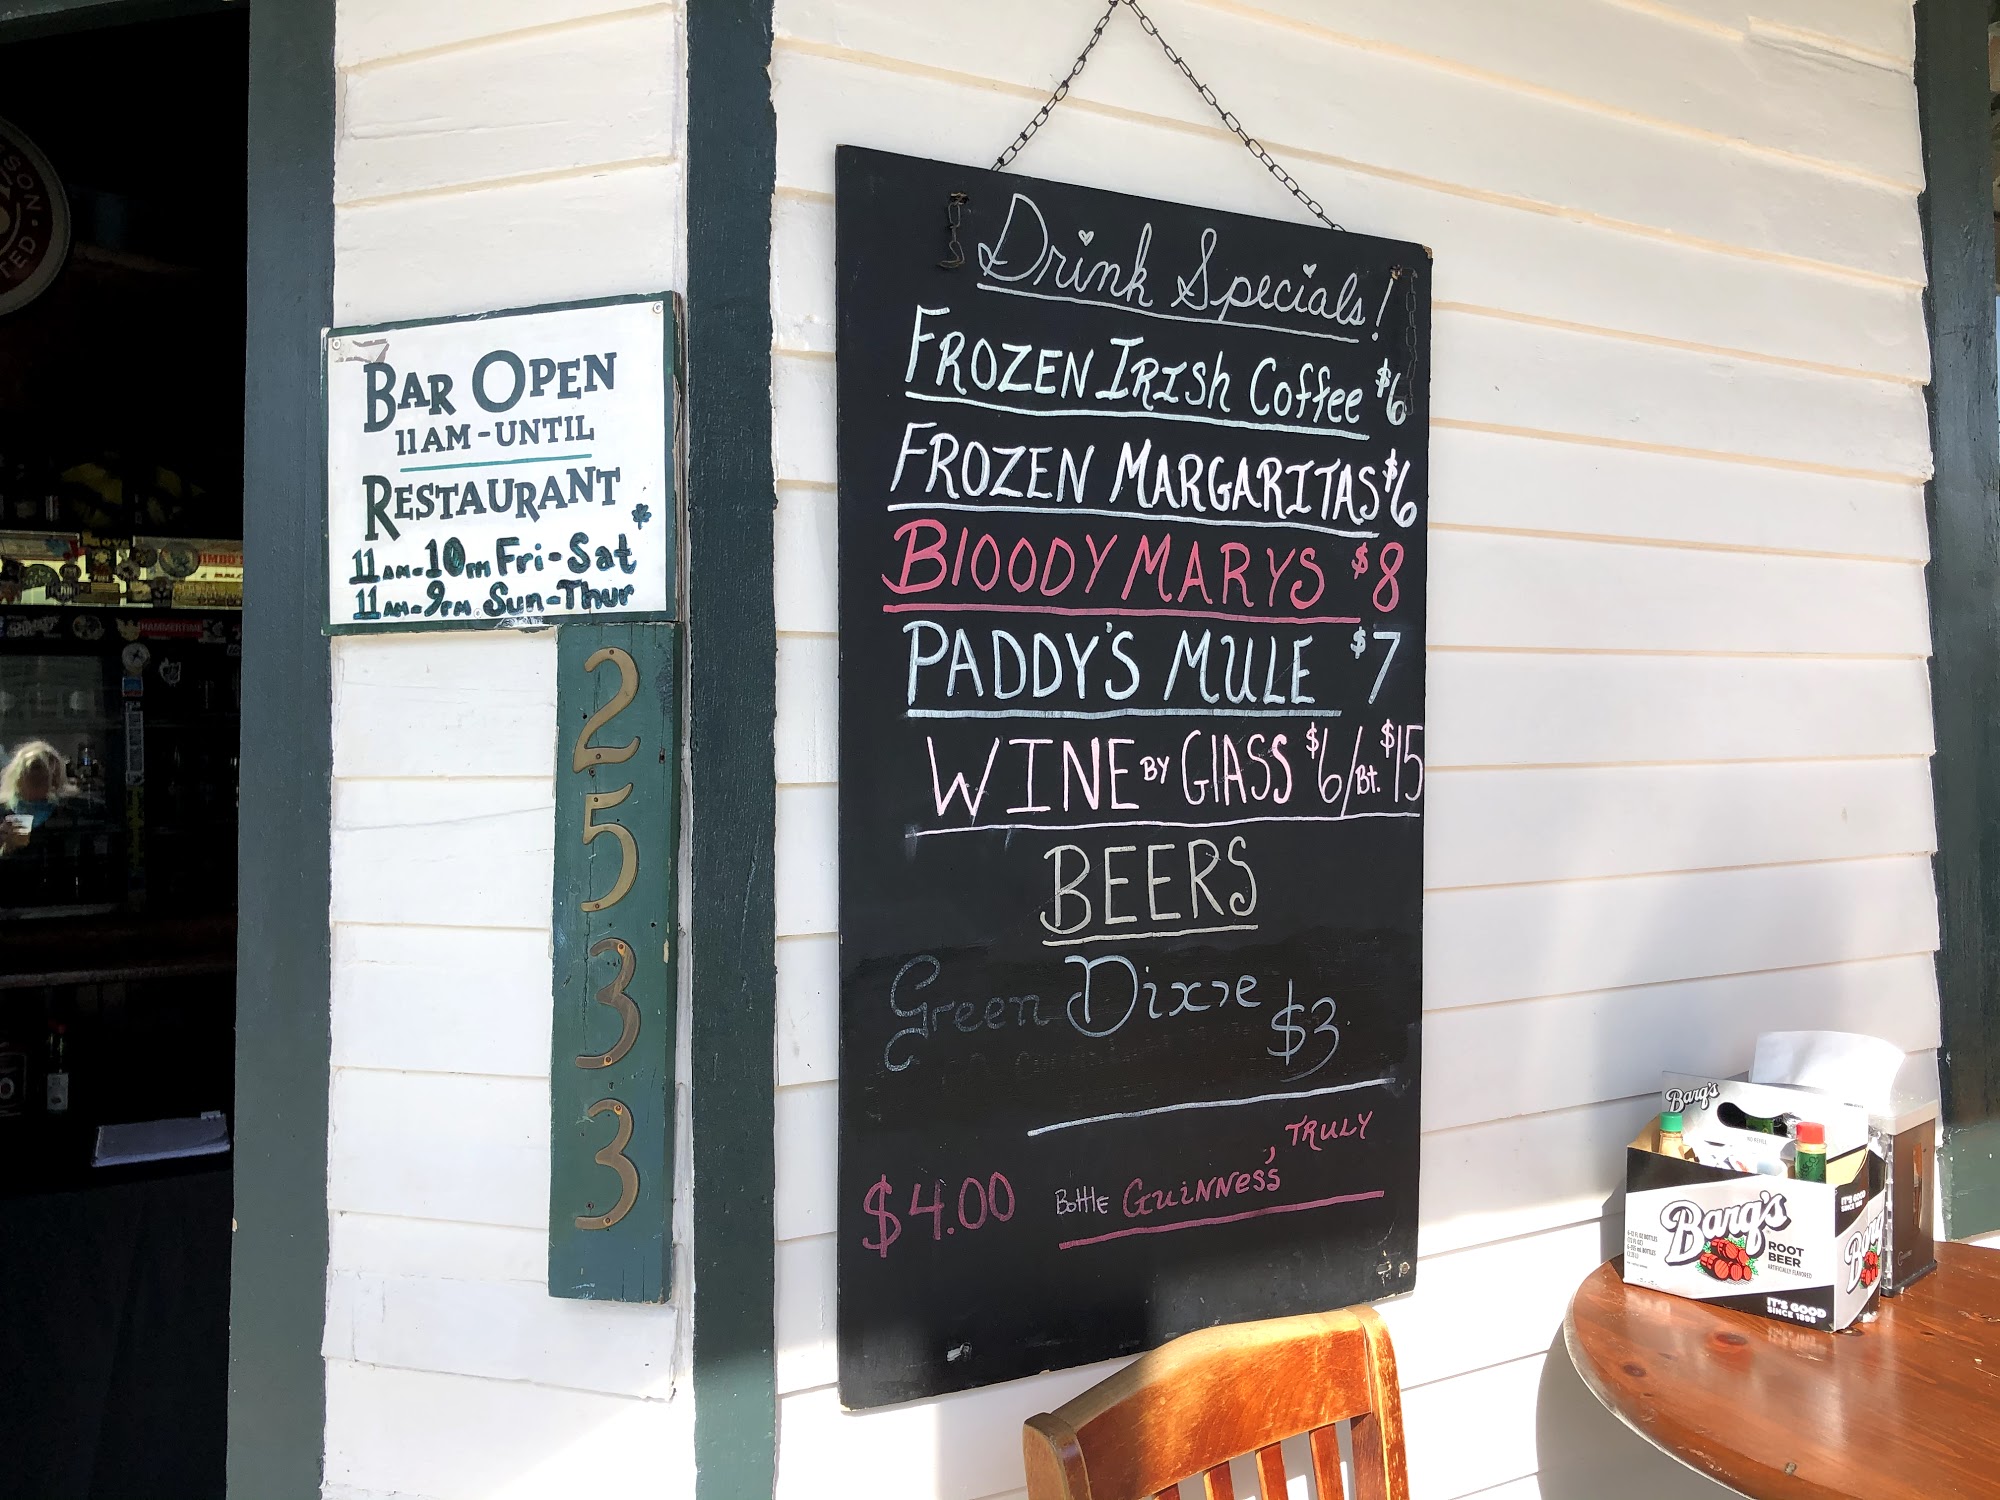 BAR OPEN
11AM-UNTIL
RESTAURANT
11AM-10PM Fri-Sat
11AM-9PM Sun-Thur
2533
Drink Specials!
FROZEN IRISh Coffee $6
FROZEN MARGARITAS $6
BlOODY MARYS $8
PADDY'S MULE $7
WINE BY GlASS $6/Bt. $15
BEERS
Green Dixie $3
TRULY
$4.00 Bottle GuiNNess',
Barq's
Barq's
ROOT
BEER
ARTIFICIALLY FLAVORED
IT'S GOOD
SINCE 1898
IT'S GOOD
SINCE 1898